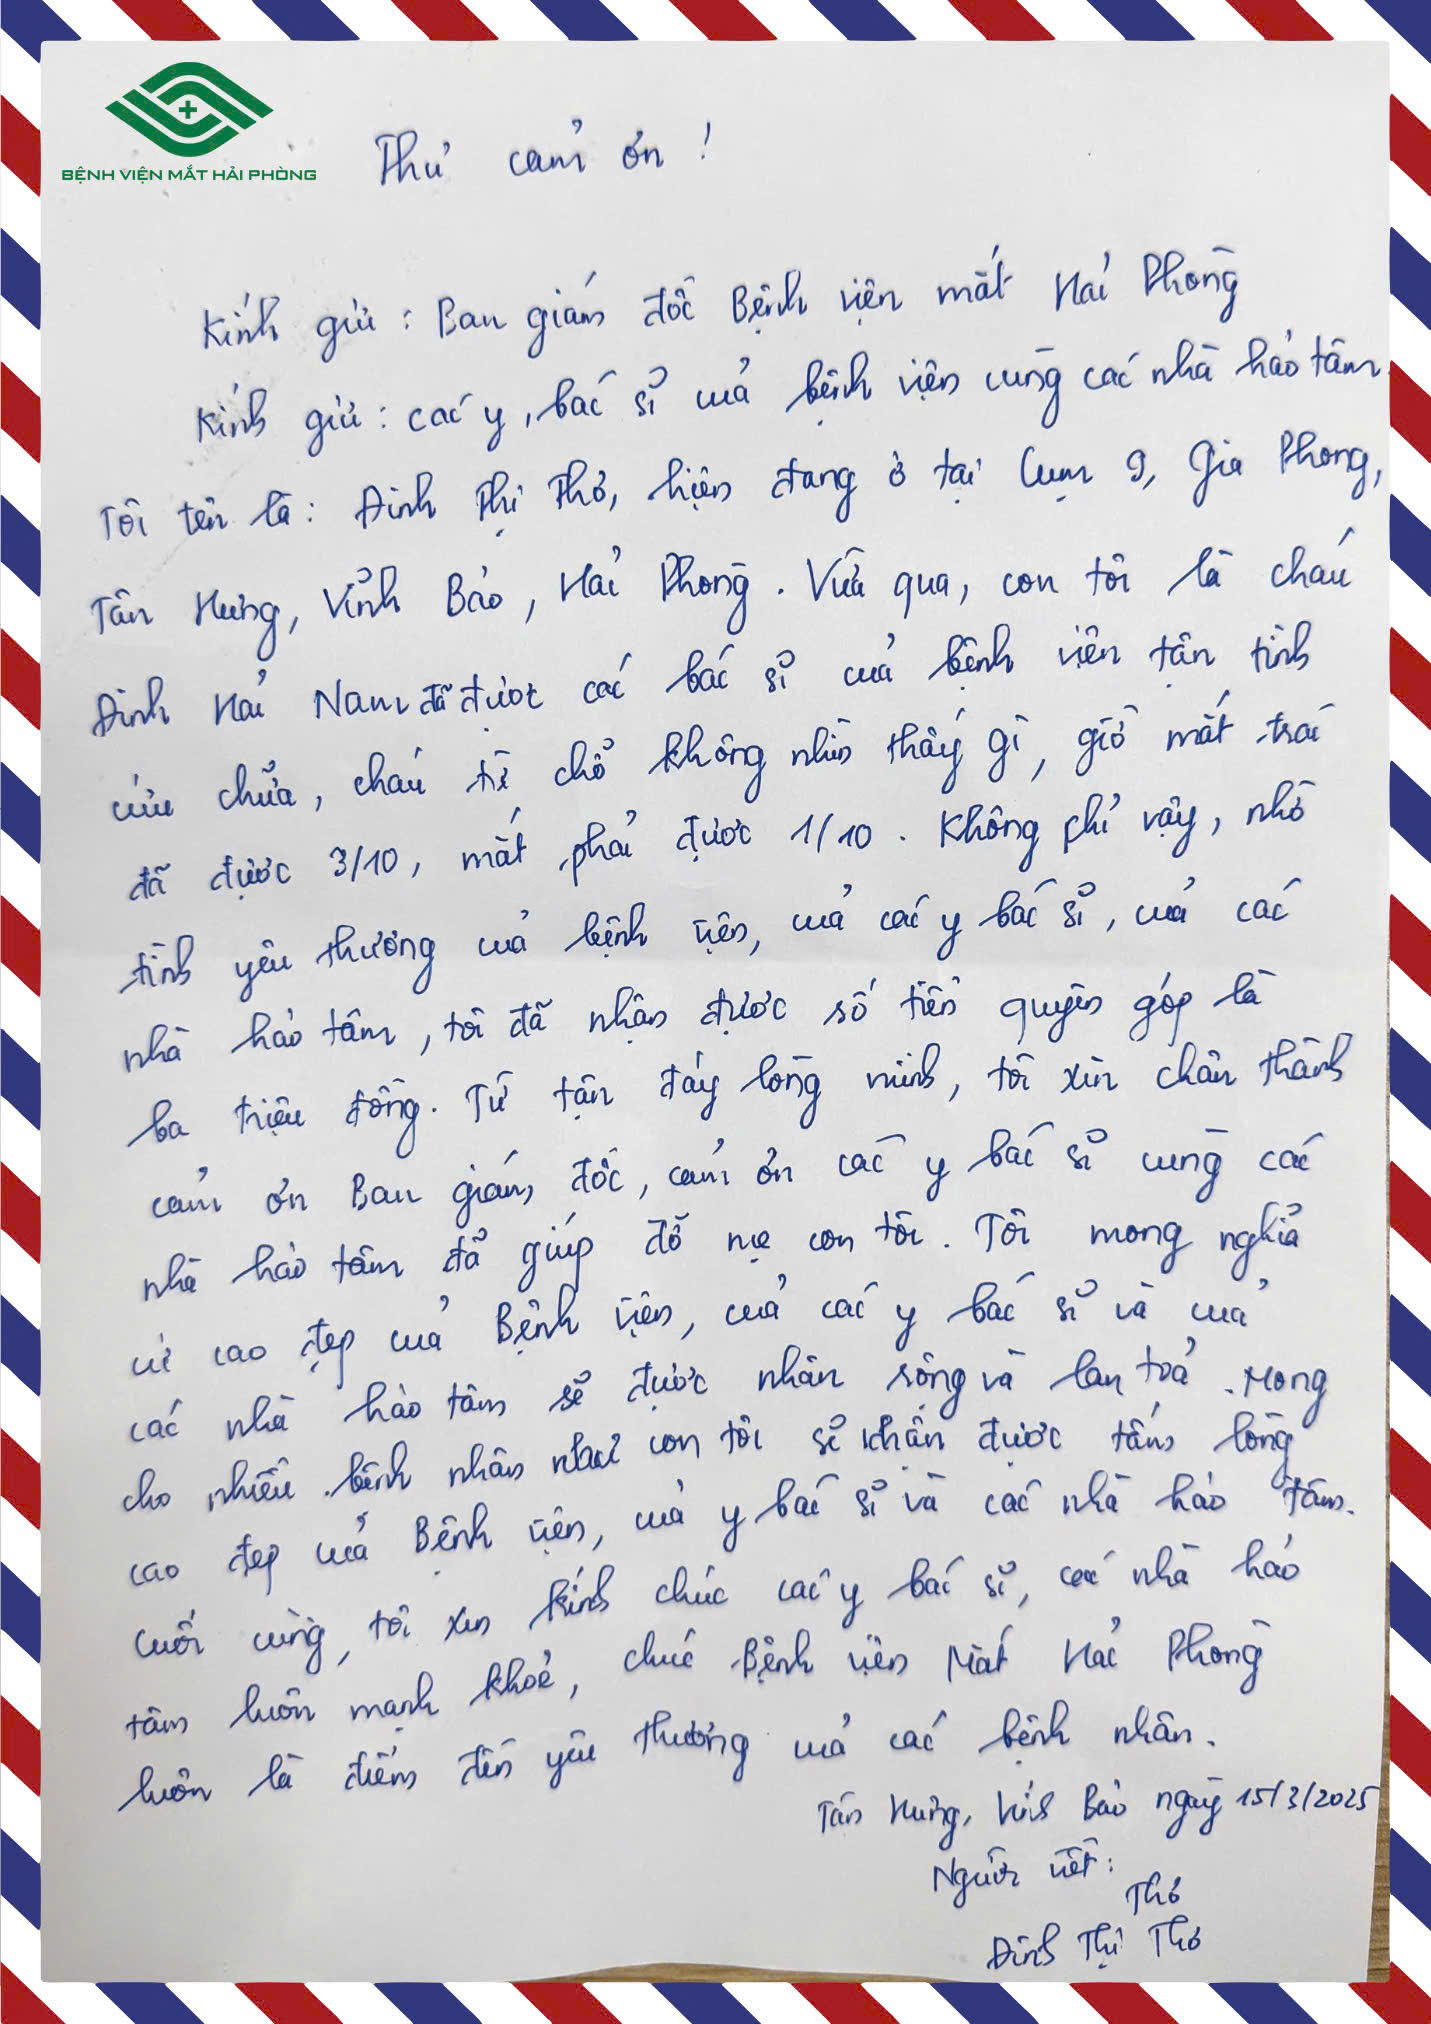 BỆNH VIỆN MẮT HẢI PHÒNG
Thư cảm ơn!
Kính gửi: Ban giám đốc Bệnh viện mắt Hải Phòng
Kính gửi: các y, bác sĩ của bệnh viện cùng các nhà hảo tâm.
Tôi tên là: Đinh Thị Thơ, hiện đang ở tại Cụm 9, Gia Phong,
Tân Hưng, Vĩnh Bảo, Hải Phòng. Vừa qua, con tôi là cháu
Đinh Hải Nam đã được các bác sĩ của bệnh viện tận tình
cứu chữa, cháu từ chỗ không nhìn thấy gì, giờ mắt trái
đã được 3/10, mắt phải được 1/10. Không chỉ vậy, nhờ
tình yêu thương của bệnh viện, của các y bác sĩ, của các
nhà hảo tâm, tôi đã nhận được số tiền quyên góp là
ba triệu đồng. Từ tận đáy lòng mình, tôi xin chân thành
cảm ơn Ban giám đốc, cảm ơn các y bác sĩ cùng các
nhà hảo tâm đã giúp đỡ mẹ con tôi. Tôi mong nghĩa
cử cao đẹp của Bệnh viện, của các y bác sĩ và của
các nhà hảo tâm sẽ được nhân rộng và lan toả. Mong
cho nhiều bệnh nhân như con tôi sẽ nhận được tấm lòng
cao đẹp của Bệnh viện, của y bác sĩ và các nhà hảo tâm.
Cuối cùng, tôi xin kính chúc các y bác sĩ, các nhà hảo
tâm luôn mạnh khoẻ, chúc Bệnh viện Mắt Hải Phòng
luôn là điểm đến yêu thương của các bệnh nhân.
Tân Hưng, Vĩnh Bảo ngày 15/3/2025
Người viết:
Thơ
Đinh Thị Thơ